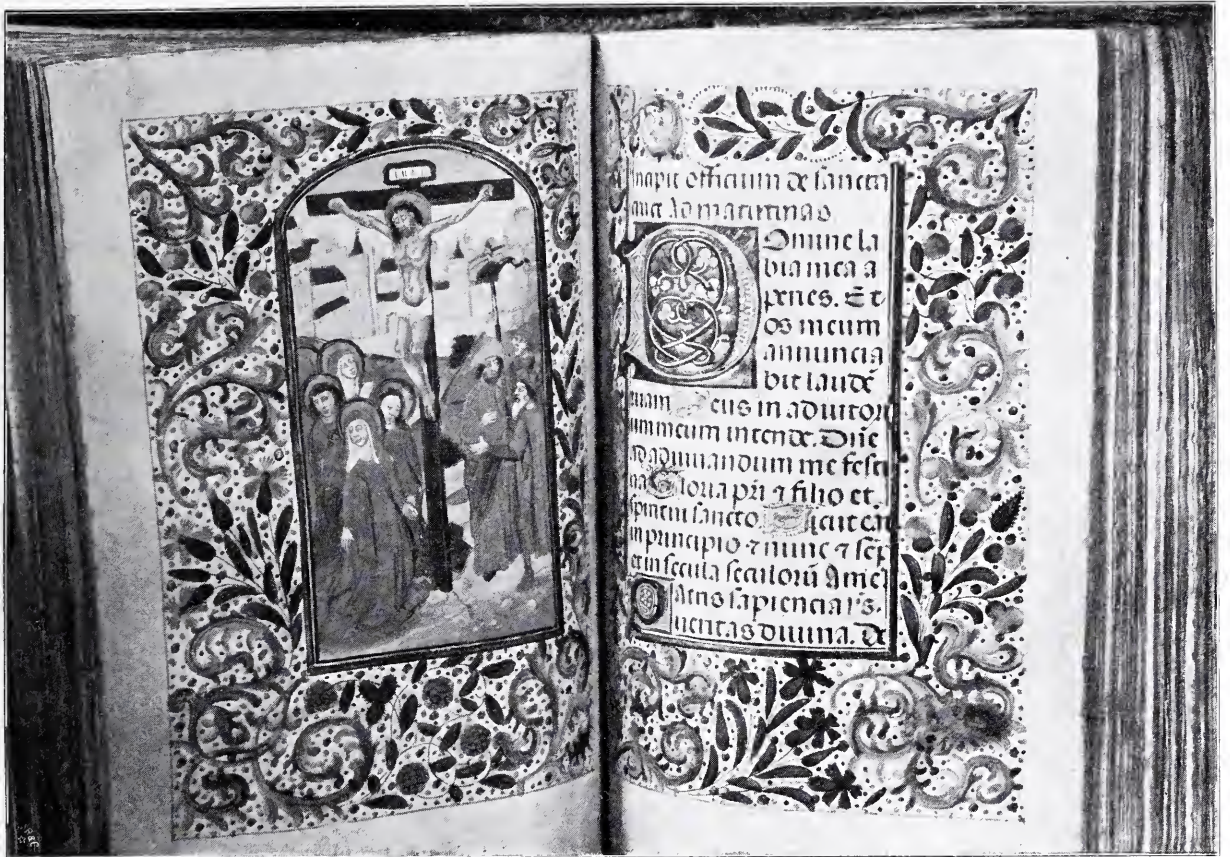 INRI
Incipit officium de sancta
cruce Ad matutinas
Domine la
bia mea a
peries. Et
os meum
annuncia
bit laudē
tuam Deus in adiutori
um meum intende. Dn̄e
ad adiuuandum me festi
na Gloria pr̄i ⁊ filio et
spiritui sancto. Sicut erat
in principio ⁊ nunc ⁊ sēp
et in secula seculorū Amen
Patris sapiencia
ueritas diuina. De